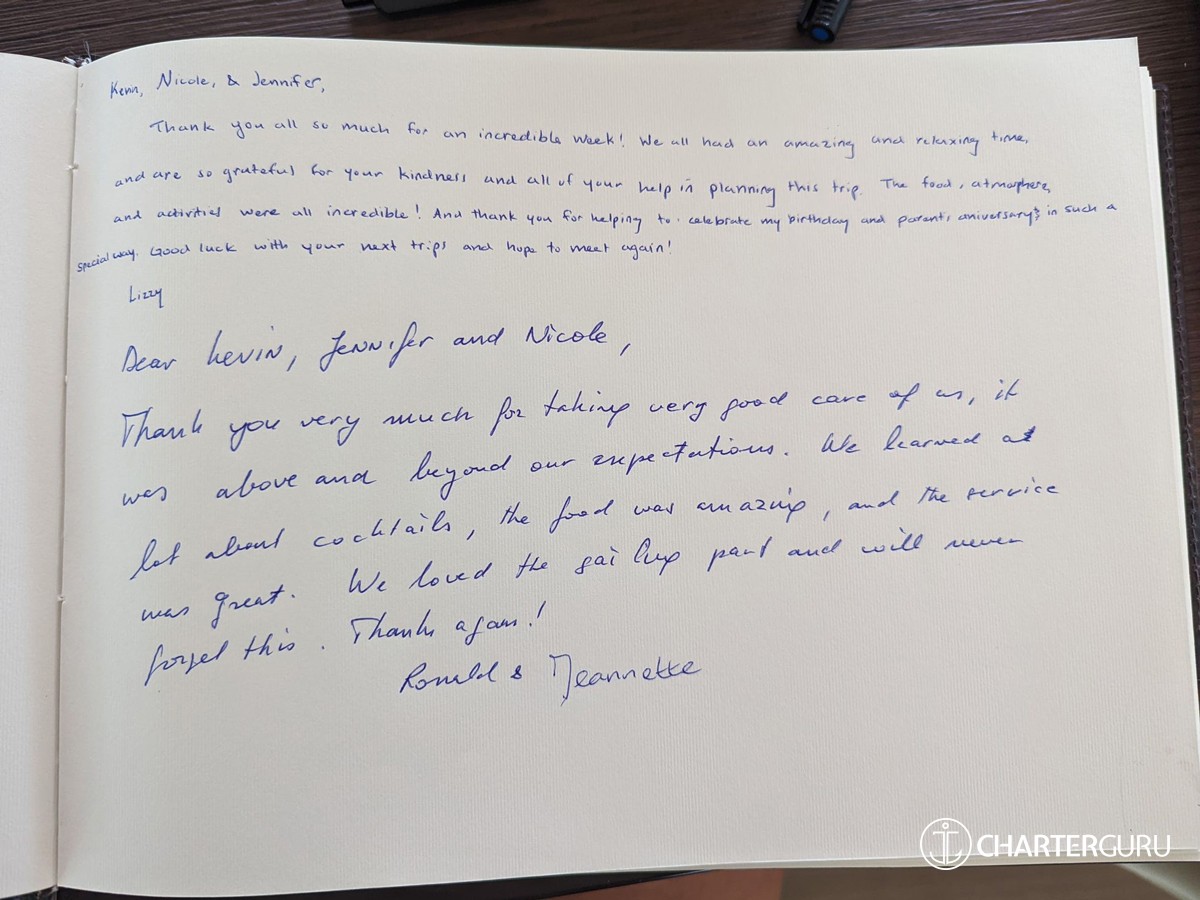 Kevin, Nicole, & Jennifer,
Thank you all so much for an incredible week! We all had an amazing and relaxing time,
and are so grateful for your kindness and all of your help in planning this trip. The food, atmosphere,
and activities were all incredible! And thank you for helping to celebrate my birthday and parents aniversary in such a
special way. Good luck with your next trips and hope to meet again!
Lizzy
Dear Kevin, Jennifer and Nicole,
Thank you very much for taking very good care of us, it
was above and beyond our expectations. We learned a
lot about cocktails, the food was amazing, and the service
was great. We loved the sailing part and will never
forget this. Thanks again!
Ronald & Jeannette
CHARTERGURU